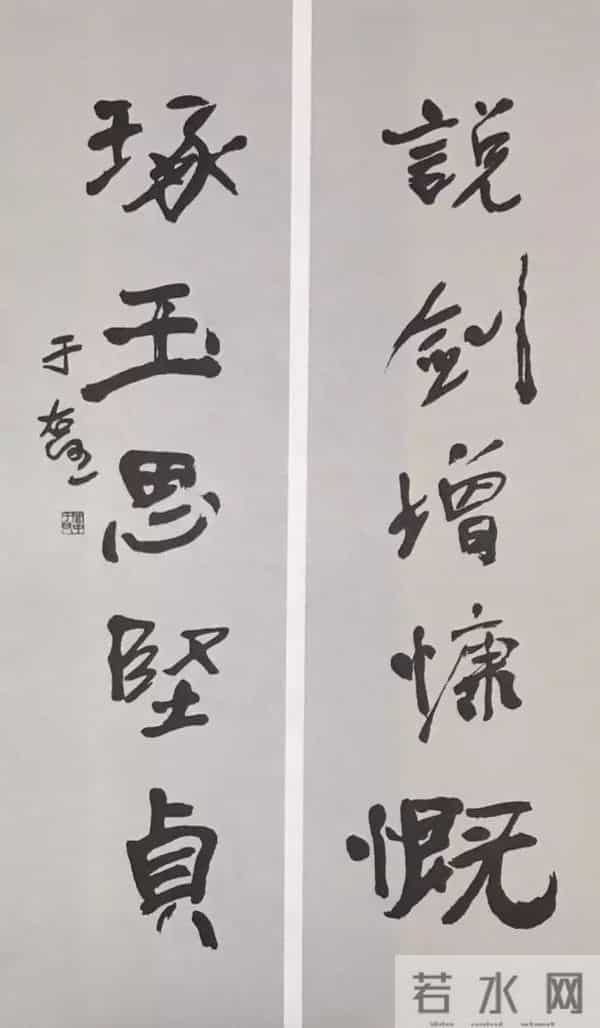 説劍增慷慨
琢玉思堅貞
于右任
若水网